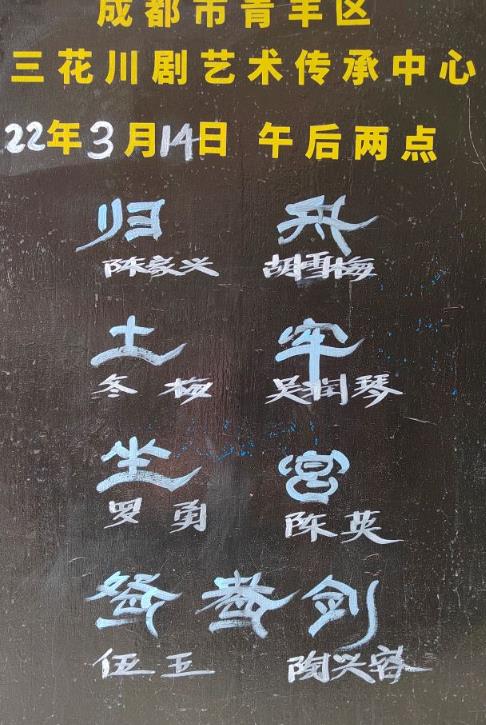 成都市青羊区
三花川剧艺术传承中心
22年3月14日 午后两点
归舟
陈家兴 胡雪梅
土牢
冬梅 吴润琴
坐宫
罗勇 陈英
鸳鸯剑
伍五 陶兴容